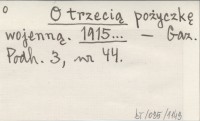 O trzecią pożyczkę
wojenną. 1915... — Gaz.
Podh. 3, nr 44.